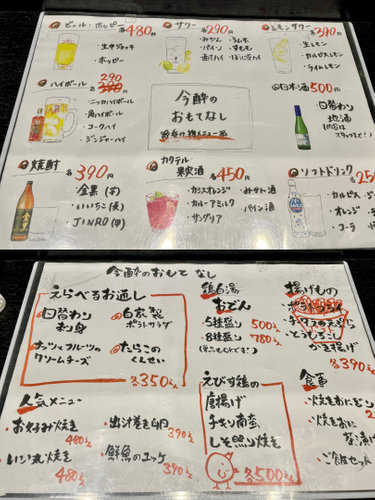 ビール・ホッピー 各480円
・生中ジョッキ
・ホッピー
サワー 各290円
・みかん ・ラムネ
・パイン ・すもも
レモンサワー 各390円
・生レモン
・カルピスレモン
・ライトレモン
ハイボール 290 390
・ニッカハイボール
・角ハイボール
・コークハイ
・ジンジャーハイ
今酔の
おもてなし
日本酒 500円
日替わり
地酒
焼酎 各390円
・金黒(芋)
・いいちこ(麦)
・JINRO(甲)
カクテル
果実酒 各450円
・カシスオレンジ ・みかん酒
・カルーアミルク ・パイン酒
・サングリア
ソフトドリンク
・カルピス
・オレンジ
・コーラ
今酔のおもてなし
えらべるお通し
日替わり
刺身
自家製
ポテトサラダ
ナッツとフルーツの
クリームチーズ
たらこの
くんせい
各350
鶏白湯
おでん
5種盛り 500
8種盛り 780
揚げもの
かき揚げ
各390
人気メニュー
・お好み焼き 480
・出汁巻き卵 390
・いか丸焼き 480
・鮮魚のユッケ 390
えびす鶏の
唐揚げ
チキン南蛮
しそ照り焼き
各500
食事
・焼きおにぎり
・焼きおに
茶漬け
・ご飯セット